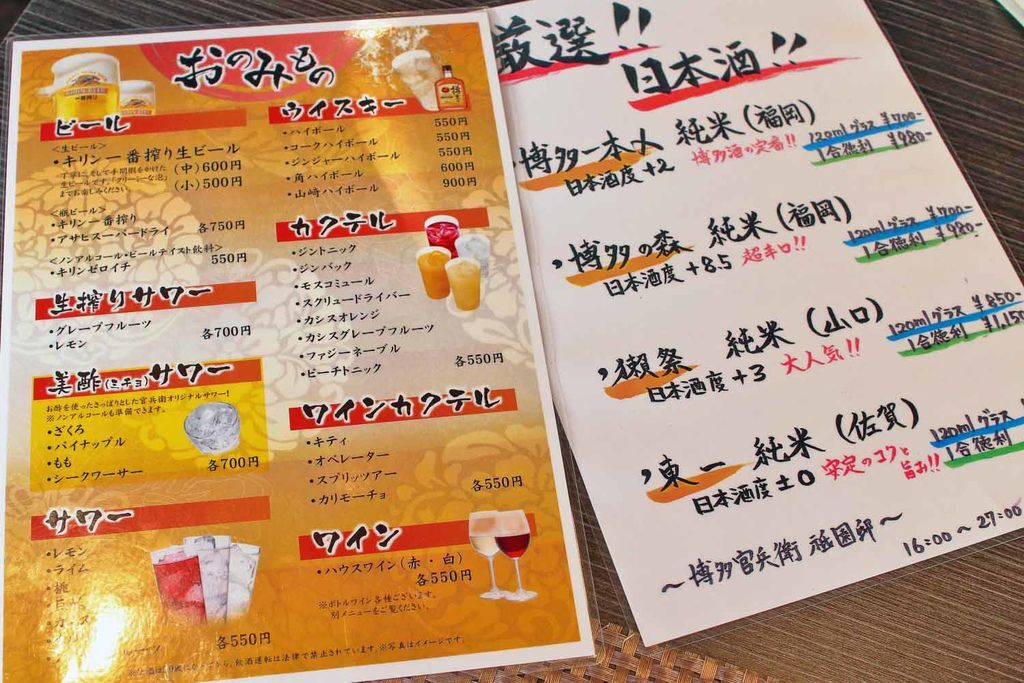 おのみもの
ビール
<生ビール>
・キリン一番搾り生ビール
丁寧に、そして手間暇をかけた
生ビールです。「クリーミーな泡」
までお楽しみください。
(中)600円
(小)500円
<瓶ビール>
・キリン一番搾り
・アサヒスーパードライ 各750円
<ノンアルコール・ビールテイスト飲料>
・キリンゼロイチ 550円
生搾りサワー
・グレープフルーツ
・レモン 各700円
美酢(ミチョ)サワー
お酢を使ったさっぱりとした官兵衛オリジナルサワー!
※ノンアルコールも準備できます。
・ざくろ
・パイナップル
・もも
・シークワーサー 各700円
サワー
・レモン
・ライム
・桃
各550円
ウイスキー
・ハイボール 550円
・コークハイボール 550円
・ジンジャーハイボール 550円
・角ハイボール 600円
・山崎ハイボール 900円
カクテル
・ジントニック
・ジンバック
・モスコミュール
・スクリュードライバー
・カシスオレンジ
・カシスグレープフルーツ
・ファジーネーブル
・ピーチトニック 各550円
ワインカクテル
・キティ
・オペレーター
・スプリッツアー
・カリモーチョ 各550円
ワイン
・ハウスワイン(赤・白)
各550円
※ボトルワイン各種ございます。
別メニューをご覧ください。
飲酒運転は法律で禁止されています。※写真はイメージです。
厳選!!
日本酒!!
博多一本〆 純米(福岡)
日本酒度+2 博多酒の定番!!
120mlグラス ¥700-
1合徳利 ¥980-
博多の森 純米(福岡)
日本酒度+8.5 超辛口!!
120mlグラス ¥700-
1合徳利 ¥980-
獺祭 純米(山口)
日本酒度+3 大人気!!
120mlグラス ¥850-
1合徳利 ¥1,150
東一 純米(佐賀)
日本酒度±0 安定のコクと
旨み!!
120mlグラス
1合徳利
~博多官兵衛 祇園邸~
16:00~27:00